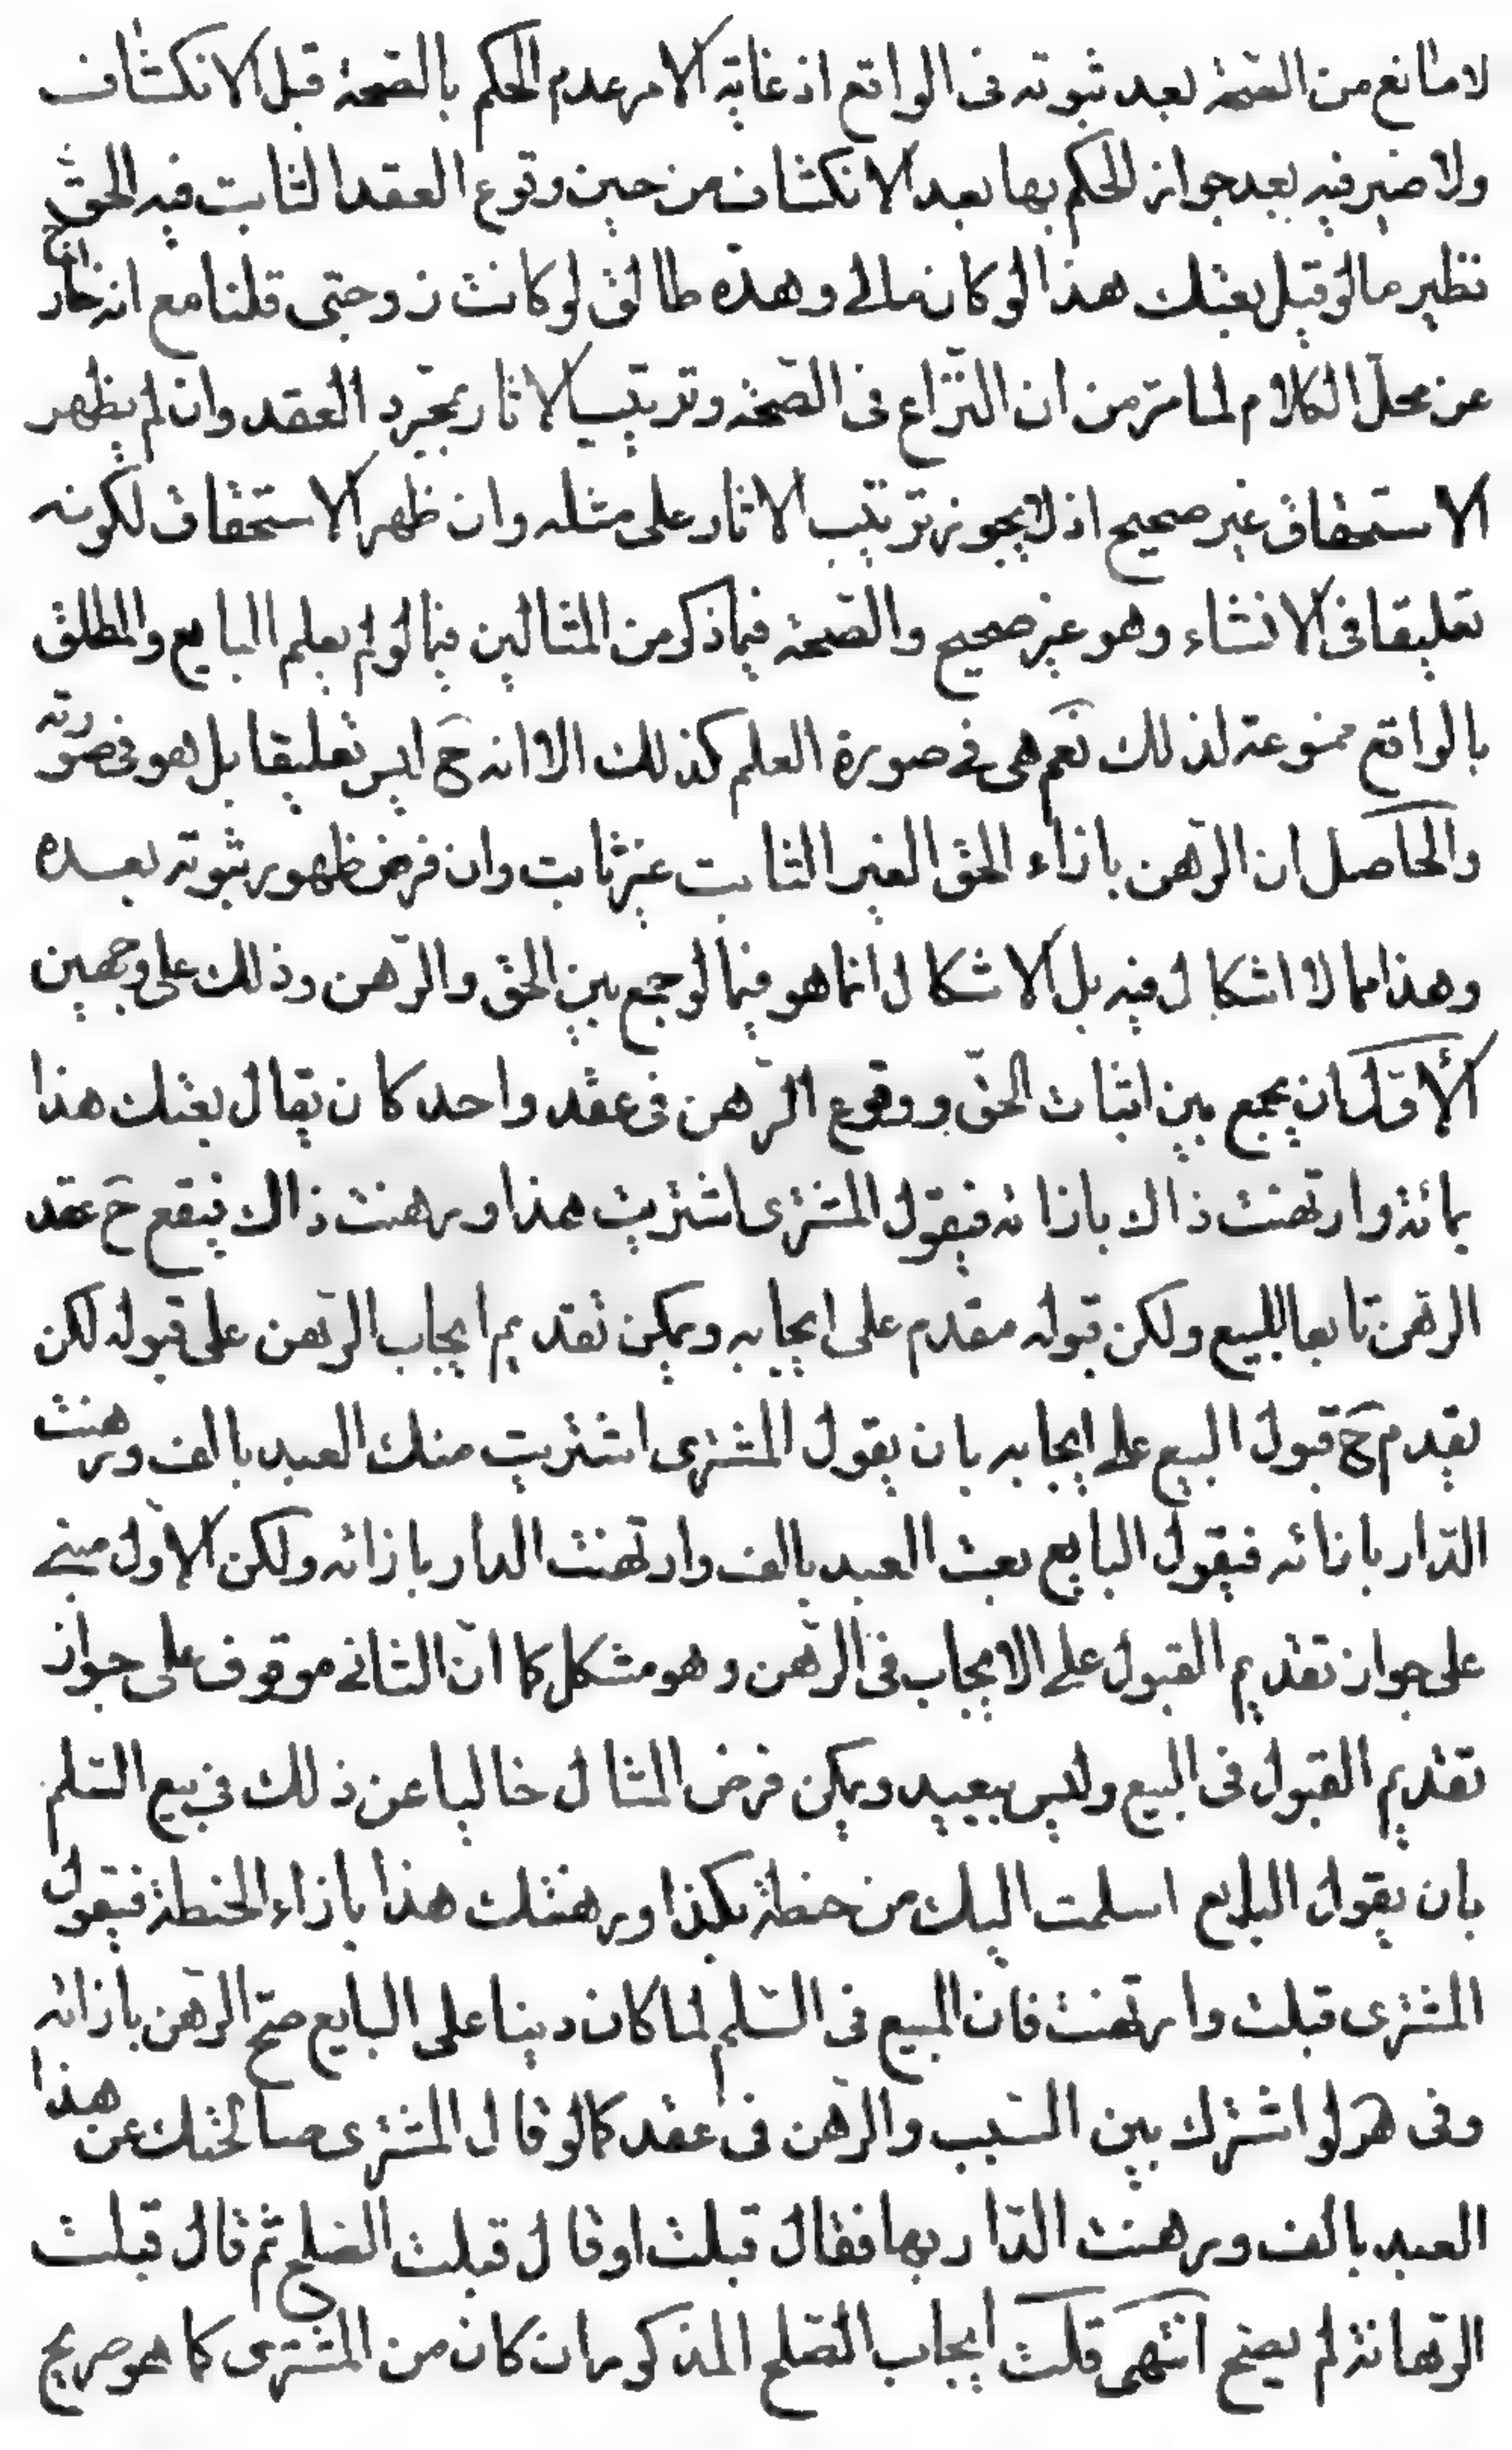 لا مانع من الصحّة بعد ثبوته فى الواقع اذ غاية الامر عدم الحكم بالصّحة قبل الانكشاف
ولا ضير فيه بعد جواز الحكم بها بعد الانكشاف من حين وقوع العقد الثابت فيه الحقّ
نظير ما لو قيل بعتك هذا لو كان مالى وهذه طالق لو كانت زوجتى قلنا مع انه خارج
عن محلّ الكلام لما مرّ من ان النّزاع فى الصّحّة وترتيب الاثار بمجرد العقد وان لم يظهر
الاستحقاق غير صحيح اذ لا يجوز ترتيب الاثار على مثله وان ظهر الاستحقاق لكونه
تعليقا فى الانشاء وهو غير صحيح والصّحة فيما ذكر من المثالين فيما لو لم يعلم البايع والمطلق
بالواقع ممنوعة لذلك نعم هى فى صورة العلم كذلك الا انه ح ليس تعليقا بل هو فى صورته
والحاصل ان الرّهن بازاء الحق الغير الثابت غير ثابت وان فرض ظهور ثبوته بعده
وهذا مما لا اشكال فيه بل الاشكال انما هو فيما لو جمع بين الحق والرّهن وذلك على وجهين
الأوّل ان يجمع بين اثبات الحقّ ووقوع الرّهن فى عقد واحد كان يقال بعتك هذا
بمائة وارتهنت ذاك بازائه فيقول المشترى اشتريت هذا ورهنت ذاك فيقع ح عقد
الرّهن تابعا للبيع ولكن قبوله مقدم على ايجابه ويمكن تقديم ايجاب الرّهن على قبوله لكن
يقدم ح قبول البيع على ايجابه بان يقول المشترى اشتريت منك العبد بالف ورهنت
الدّار بازائه فيقول البايع بعت العبد بالف وارتهنت الدار بازائه ولكن الاول مبنى
على جواز تقديم القبول على الايجاب فى الرّهن وهو مشكل كما انّ الثانى موقوف على جواز
تقديم القبول فى البيع وليس ببعيد ويمكن فرض المثال خاليا عن ذلك فى بيع السّلم
بان يقول البايع اسلمت اليك من حنطة بكذا ورهنتك هذا بازاء الحنطة فيقول
المشترى قبلت وارتهنت فان المبيع فى السّلم لما كان دينا على البايع صحّ الرّهن بازائه
وفى هر لو اشترك بين السّبب والرّهن فى عقد كما لو قال المشترى صالحتك عن هذا
العبد بالف ورهنت الدّار بها فقال قبلت او قال قبلت الصّلح ثم قال قبلت
الرّهانة لم يصح انتهى قلت ايجاب الصّلح المذكور ان كان من المشترى كما هو صريح